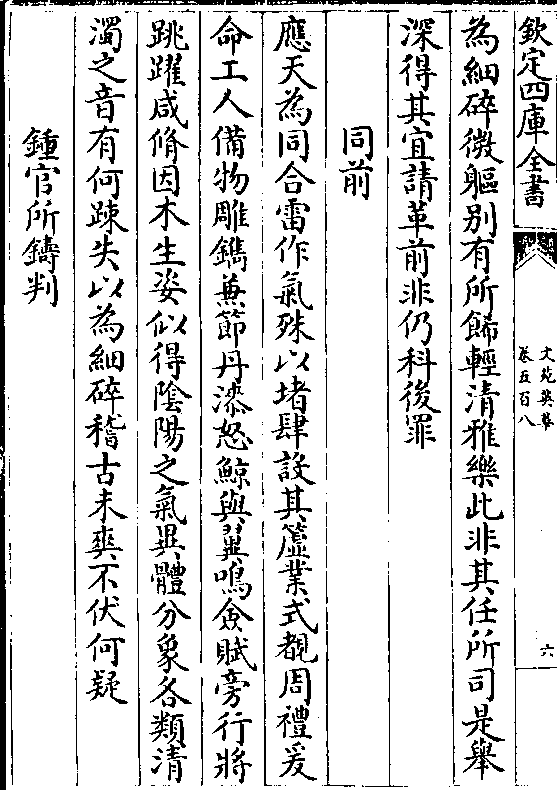 欽定四庫全書
文苑英華
卷五百八
六
為細碎微軀别有所餙輕清雅樂此非其任所司是舉
深得其宜請革前非仍科後罪
同前
應天為同合雷作氣殊以堵肆設其簴業式覩周禮爰
命工人備物雕鐫兼節丹漆怒鯨與翼鳴僉賦旁行將
跳躍咸脩因木生姿似得陰陽之氣異體分象各類清
濁之音有何踈失以為細碎稽古未爽不伏何疑
鍾官所鑄判